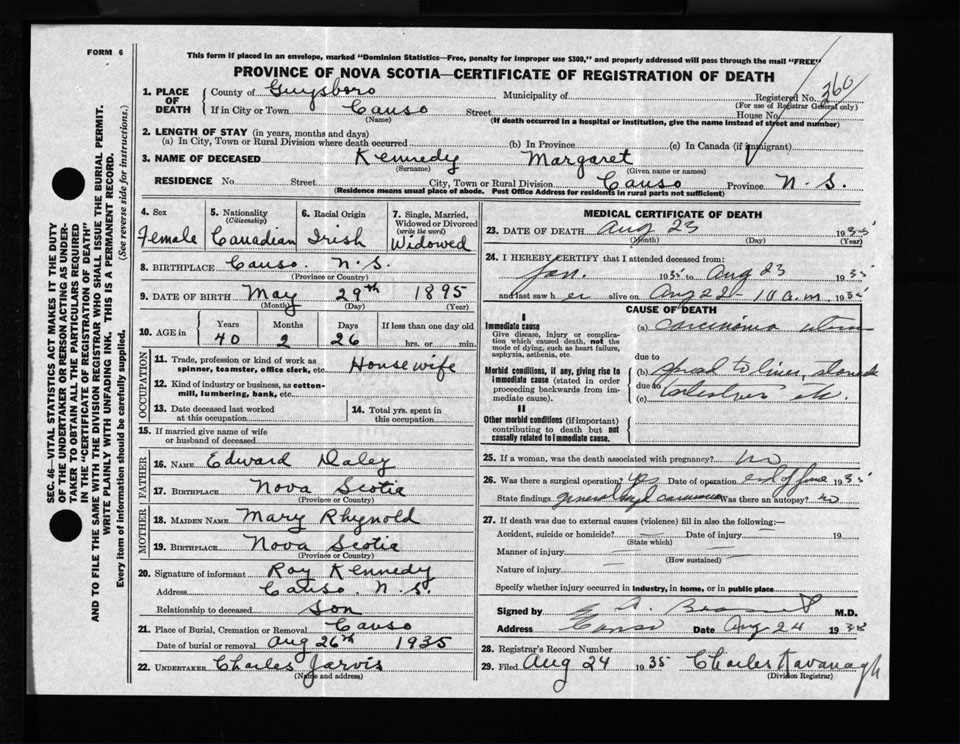 FORM 6
This form if placed in an envelope, marked "Dominion Statistics—Free, penalty for improper use $300," and properly addressed will pass through the mail "FREE"
PROVINCE OF NOVA SCOTIA—CERTIFICATE OF REGISTRATION OF DEATH
SEC. 46—VITAL STATISTICS ACT MAKES IT THE DUTY
OF THE UNDERTAKER OR PERSON ACTING AS UNDER-
TAKER TO OBTAIN ALL THE PARTICULARS REQUIRED
IN THE "CERTIFICATE OF REGISTRATION OF DEATH"
AND TO FILE THE SAME WITH THE DIVISION REGISTRAR WHO SHALL ISSUE THE BURIAL PERMIT.
WRITE PLAINLY WITH UNFADING INK. THIS IS A PERMANENT RECORD.
Every item of information should be carefully supplied. (See reverse side for instructions.)
1. PLACE OF DEATH County of Guysboro Municipality of Registered No. 360
(For use of Registrar General only)
If in City or Town Canso Street House No.
(Name) (If death occurred in a hospital or institution, give the name instead of street and number)
2. LENGTH OF STAY (in years, months and days)
(a) In City, Town or Rural Division where death occurred (b) In Province (c) In Canada (if immigrant)
3. NAME OF DECEASED Kennedy Margaret
(Surname) (Given name or names)
RESIDENCE No. Street City, Town or Rural Division Canso Province N.S.
(Residence means usual place of abode. Post Office Address for residents in rural parts not sufficient)
4. Sex Female
5. Nationality (Citizenship) Canadian
6. Racial Origin Irish
7. Single, Married, Widowed or Divorced (write the word) Widowed
8. BIRTHPLACE Canso. N.S.
(Province or Country)
9. DATE OF BIRTH May 29th 1895
(Month) (Day) (Year)
10. AGE in Years Months Days If less than one day old
40 2 26 hrs. or min.
OCCUPATION
11. Trade, profession or kind of work as spinner, teamster, office clerk, etc. Housewife
12. Kind of industry or business, as cotton-mill, lumbering, bank, etc.
13. Date deceased last worked at this occupation
14. Total yrs. spent in this occupation
15. If married give name of wife or husband of deceased
FATHER
16. NAME Edward Daley
17. BIRTHPLACE Nova Scotia
(Province or Country)
MOTHER
18. MAIDEN NAME Mary Rhynold
19. BIRTHPLACE Nova Scotia
(Province or Country)
20. Signature of informant Roy Kennedy
Address Canso. N.S.
Relationship to deceased Son
21. Place of Burial, Cremation or Removal Canso
Date of burial or removal Aug 26th 1935
22. UNDERTAKER Charles Jarvis
(Name and address)
MEDICAL CERTIFICATE OF DEATH
23. DATE OF DEATH Aug 23 1935
(Month) (Day) (Year)
24. I HEREBY CERTIFY that I attended deceased from:
Jan. 1935 to Aug 23 1935
and last saw her alive on Aug 22 - 10 a.m. 1935
CAUSE OF DEATH
I
Immediate cause
Give disease, injury or complication which caused death, not the mode of dying, such as heart failure, asphyxia, asthenia, etc.
(a) carcinoma
due to
Morbid conditions, if any, giving rise to immediate cause (stated in order proceeding backwards from immediate cause).
(b) spread to liver, stomach
due to
(c)
II
Other morbid conditions (if important) contributing to death but not causally related to immediate cause.
25. If a woman, was the death associated with pregnancy? no
26. Was there a surgical operation? yes Date of operation end of June 1935
State findings Was there an autopsy? no
27. If death was due to external causes (violence) fill in also the following:—
Accident, suicide or homicide? Date of injury 19
(State which)
Manner of injury
(How sustained)
Nature of injury
Specify whether injury occurred in industry, in home, or in public place
Signed by M.D.
Address Canso Date Aug 24 1935
28. Registrar's Record Number
29. Filed Aug 24 1935 Charles Kavanagh
(Division Registrar)